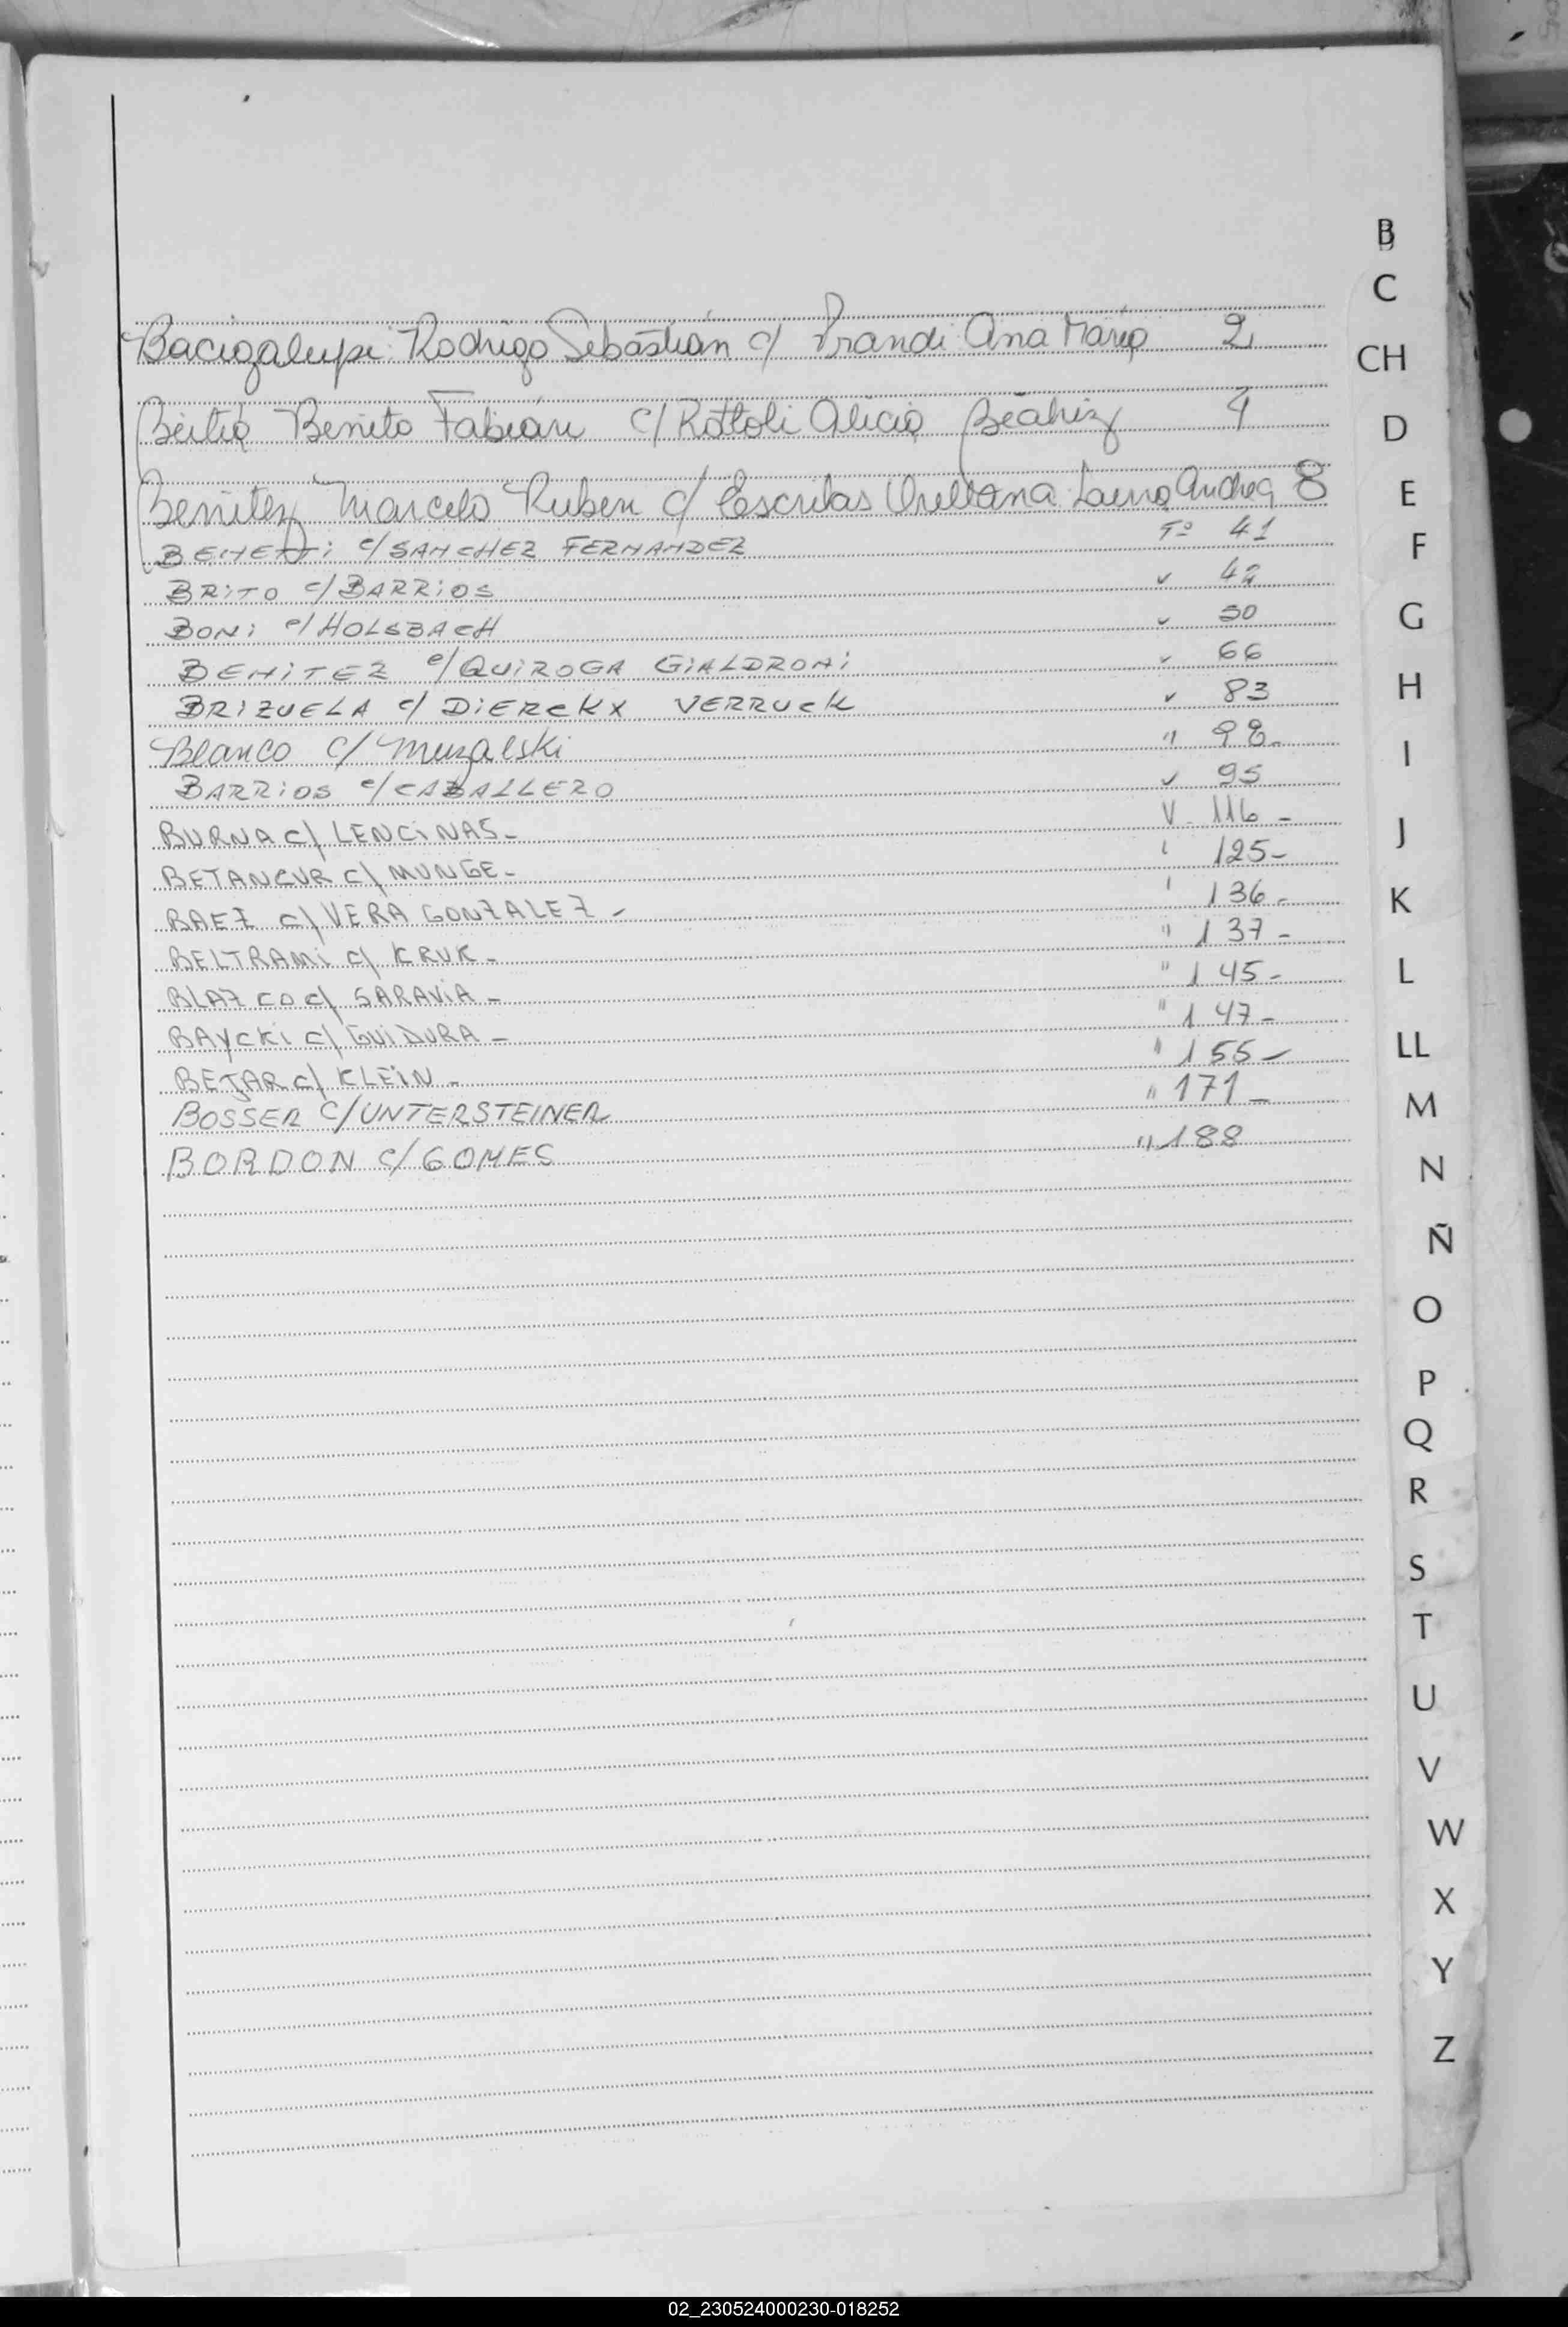 Bacigalupi Rodrigo Sebastián c/ Prandi Ana María 2
Beitia Benito Fabián c/ Rottoli Alicia Beatriz 4
Benitez Marcelo Ruben c/ Escribas Orellana Laura Andrea 8
BENETTi c/ SANCHEZ FERNANDEZ Tº 41
BRiTO c/ BARRiOS 42
BONi c/ HOLSBACH 50
BENiTEZ c/ QUiROGA GiALDRONi 66
BRIZUELA c/ DiERCKX VERRUCK 83
Blanco c/ Muzalski " 98-
BARRiOS c/ CABALLERO 95
BURNA c/ LENCiNAS- 116-
BETANCUR c/ MUNGE- 125-
BAEZ c/ VERA GONZALEZ- 136-
BELTRAMi c/ KRUK- " 137-
BLAZCO c/ SARAViA- " 145-
BAYCKi c/ GUiDURA- " 147-
BEJAR c/ KLEiN- " 155-
BOSSER C/ UNTERSTEINER " 171-
BORDON C/ GOMES " 188
B
C
CH
D
E
F
G
H
I
J
K
L
LL
M
N
Ñ
O
P
Q
R
S
T
U
V
W
X
Y
Z
02_230524000230-018252